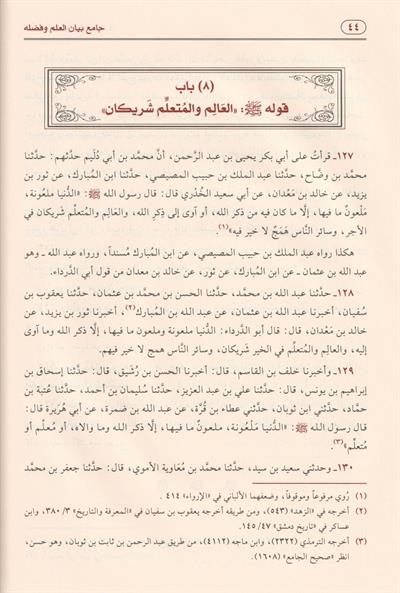 ٤٤
جامع بيان العلم وفضله
(٨) باب
قوله ﷺ: «العَالِم والمُتعلِّم شَريكان»
١٢٧ـ قرأتُ على أبي بكر يحيى بن عبد الرَّحمن، أنَّ محمَّد بن أبي دُليم حدَّثهم: حدَّثنا
محمَّد بن وضَّاح، حدَّثنا عبد الملك بن حبيب المصيصي، حدَّثنا ابن المُبارك، عن ثور بن
يزيد، عن خالد بن مَعْدان، عن أبي سعيد الخُدْري قال: قال رسول الله ﷺ: «الدُّنيا ملعُونة،
مَلعُونٌ ما فيها، إلَّا ما كان فيه من ذكر الله، أو آوى إلى ذِكر الله، والعَالِم والمُتعلِّم شَرِيكان في
الأجر، وسائر النَّاس هَمَجٌ لا خير فيه»(١).
هكذا رواه عبد الملك بن حبيب المصيصي، عن ابن المُبارك مُسنداً، ورواه عبد الله ـ وهو
عبد الله بن عثمان ـ عن ابن المُبارك، عن ثور، عن خالد بن معدان من قول أبي الدَّرداء.
١٢٨ـ حدَّثنا عبد الله بن محمَّد، حدَّثنا الحسن بن محمَّد بن عثمان، حدَّثنا يعقوب بن
سُفيان، أخبرنا عبد الله بن عثمان، عن عبد الله بن المُبارك(٢)، أخبرنا ثور بن يزيد، عن
خالد بن مَعْدان، قال: قال أبو الدَّرداء: الدُّنيا ملعونة وملعون ما فيها، إلَّا ذكر الله وما آوى
إليه، والعالِم والمُتعلِّم في الخير شَريكان، وسائر النَّاس همج لا خير فيهم.
١٢٩ـ وأخبرنا خلف بن القاسم، قال: أخبرنا الحسن بن رُشَيق، قال: حدَّثنا إسحاق بن
إبراهيم بن يونس، قال: حدَّثنا علي بن عبد العزيز، حدَّثنا سُليمان بن أحمد، حدَّثنا عُتبة بن
حمَّاد، حدَّثني ابن ثوبان، حدَّثني عطاء بن قُرَّة، عن عبد الله بن ضمرة، عن أبي هُرَيرة قال:
قال رسول الله ﷺ: «الدُّنيا مَلْعُونة، ملعونٌ ما فيها، إلَّا ذكر الله وما والاه، أو مُعلِّم أو
مُتعلِّم»(٣).
١٣٠ـ وحدثني سعيد بن سيد، حدَّثنا محمَّد بن مُعَاوية الأموي، قال: حدَّثنا جعفر بن محمَّد
(١) رُوي مرفوعاً وموقوفاً، وضعفهما الألباني في «الإرواء» ٤١٤.
(٢) أخرجه في «الزهد» (٥٤٣)، ومن طريقه أخرجه يعقوب بن سفيان في «المعرفة والتاريخ» ٣/ ٣٨٠، وابن
عساكر في «تاريخ دمشق» ٤٧/ ١٤٥.
(٣) أخرجه الترمذي (٢٣٢٢)، وابن ماجه (٤١١٢)، من طريق عبد الرحمن بن ثابت بن ثوبان، وهو حسن،
انظر «صحيح الجامع» (١٦٠٨).